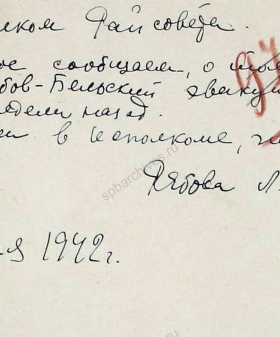 лком Райсовета.
ое сообщаем, о
бов-Бельский эвакуи
недели назад.
ен в исполкоме,
Рябова Л.
ля 1942г.
spbarchives.ru